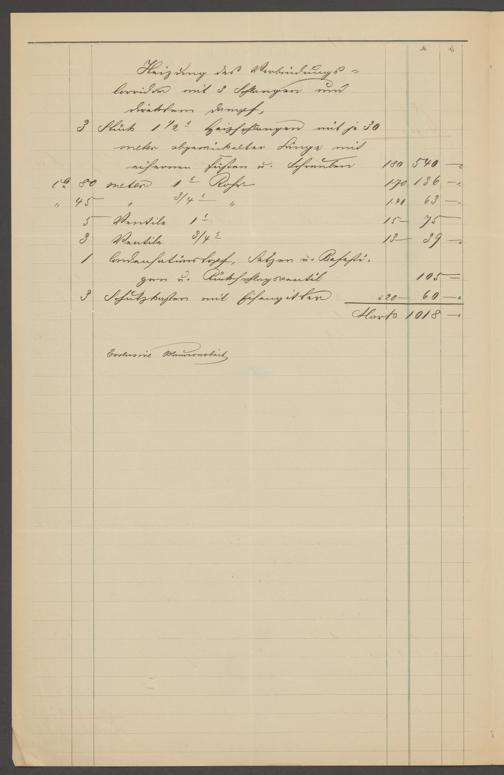 M. ₰
Heizung des Verbindungs-
Corridor mit 3 Schlangen und
direktem Dampf,
3 Stück 1 1/2" Heizschlangen mit je 30
meter abgewickelter Länge mit
eisernen Füßen u. Schrauben 180 540 —
ca 80 meter 1" Rohr 170 136 —
„ 45 „ 3/4" „ 140 63 —
5 Ventile 1" 15— 75 —
3 Ventile 3/4" 13— 39 —
1 Condensationstopf, Setzen u. Befesti-
gen u. Rückschlagventil 105 —
3 Schutzkasten mit Eisengitter 20— 60 —
Mark 1018 —
Exclusive Maurerarbeit